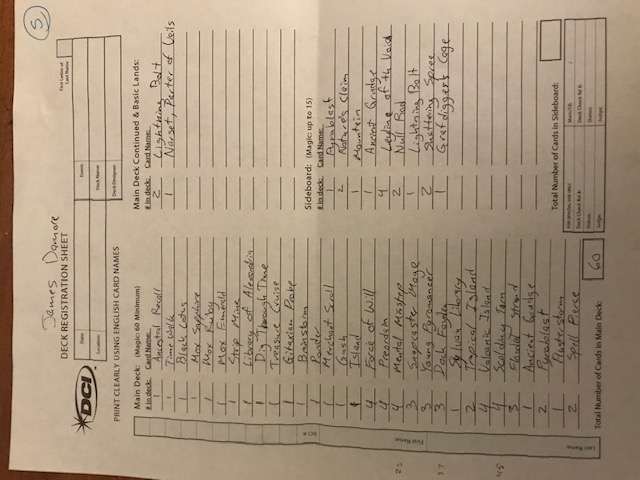 S
James Damore
DECK REGISTRATION SHEET
First Letter of
Last Name
DCI
Date:
Event:
Location:
Deck Name:
Deck Designer:
PRINT CLEARLY USING ENGLISH CARD NAMES
Main Deck: (Magic: 60 Minimum)
# in deck: Card Name:
1 Ancestral Recall
1 Time Walk
1 Black Lotus
1 Mox Sapphire
1 Mox Ruby
1 Mox Emerald
1 Strip Mine
1 Library of Alexandria
1 Dig Through Time
1 Treasure Cruise
1 Gitaxian Probe
1 Brainstorm
1 Ponder
1 Merchant Scroll
1 Gush
1 Island
4 Force of Will
4 Preordain
4 Mental Misstep
3 Snapcaster Mage
3 Young Pyromancer
3 Dack Fayden
1 Sylvan Library
2 Tropical Island
4 Volcanic Island
4 Scalding Tarn
3 Flooded Strand
1 Ancient Grudge
2 Pyroblast
1 Flusterstorm
2 Spell Pierce
Total Number of Cards in Main Deck: 60
Main Deck Continued & Basic Lands:
# in deck: Card Name:
2 Lightning Bolt
1 Narset, Parter of Veils
Sideboard: (Magic: up to 15)
# in deck: Card Name:
1 Pyroblast
2 Nature's Claim
1 Mountain
1 Ancient Grudge
4 Leyline of th Void
2 Null Rod
1 Lightning Bolt
2 Shattering Spree
1 Grafdigger's Cage
Total Number of Cards in Sideboard:
FOR OFFICIAL USE ONLY
Main/SB: /
Deck Check Rd #:
Deck Check Rd #:
Status:
Status:
Judge:
Judge:
DCI #:
First Name:
Last Name:
37
45